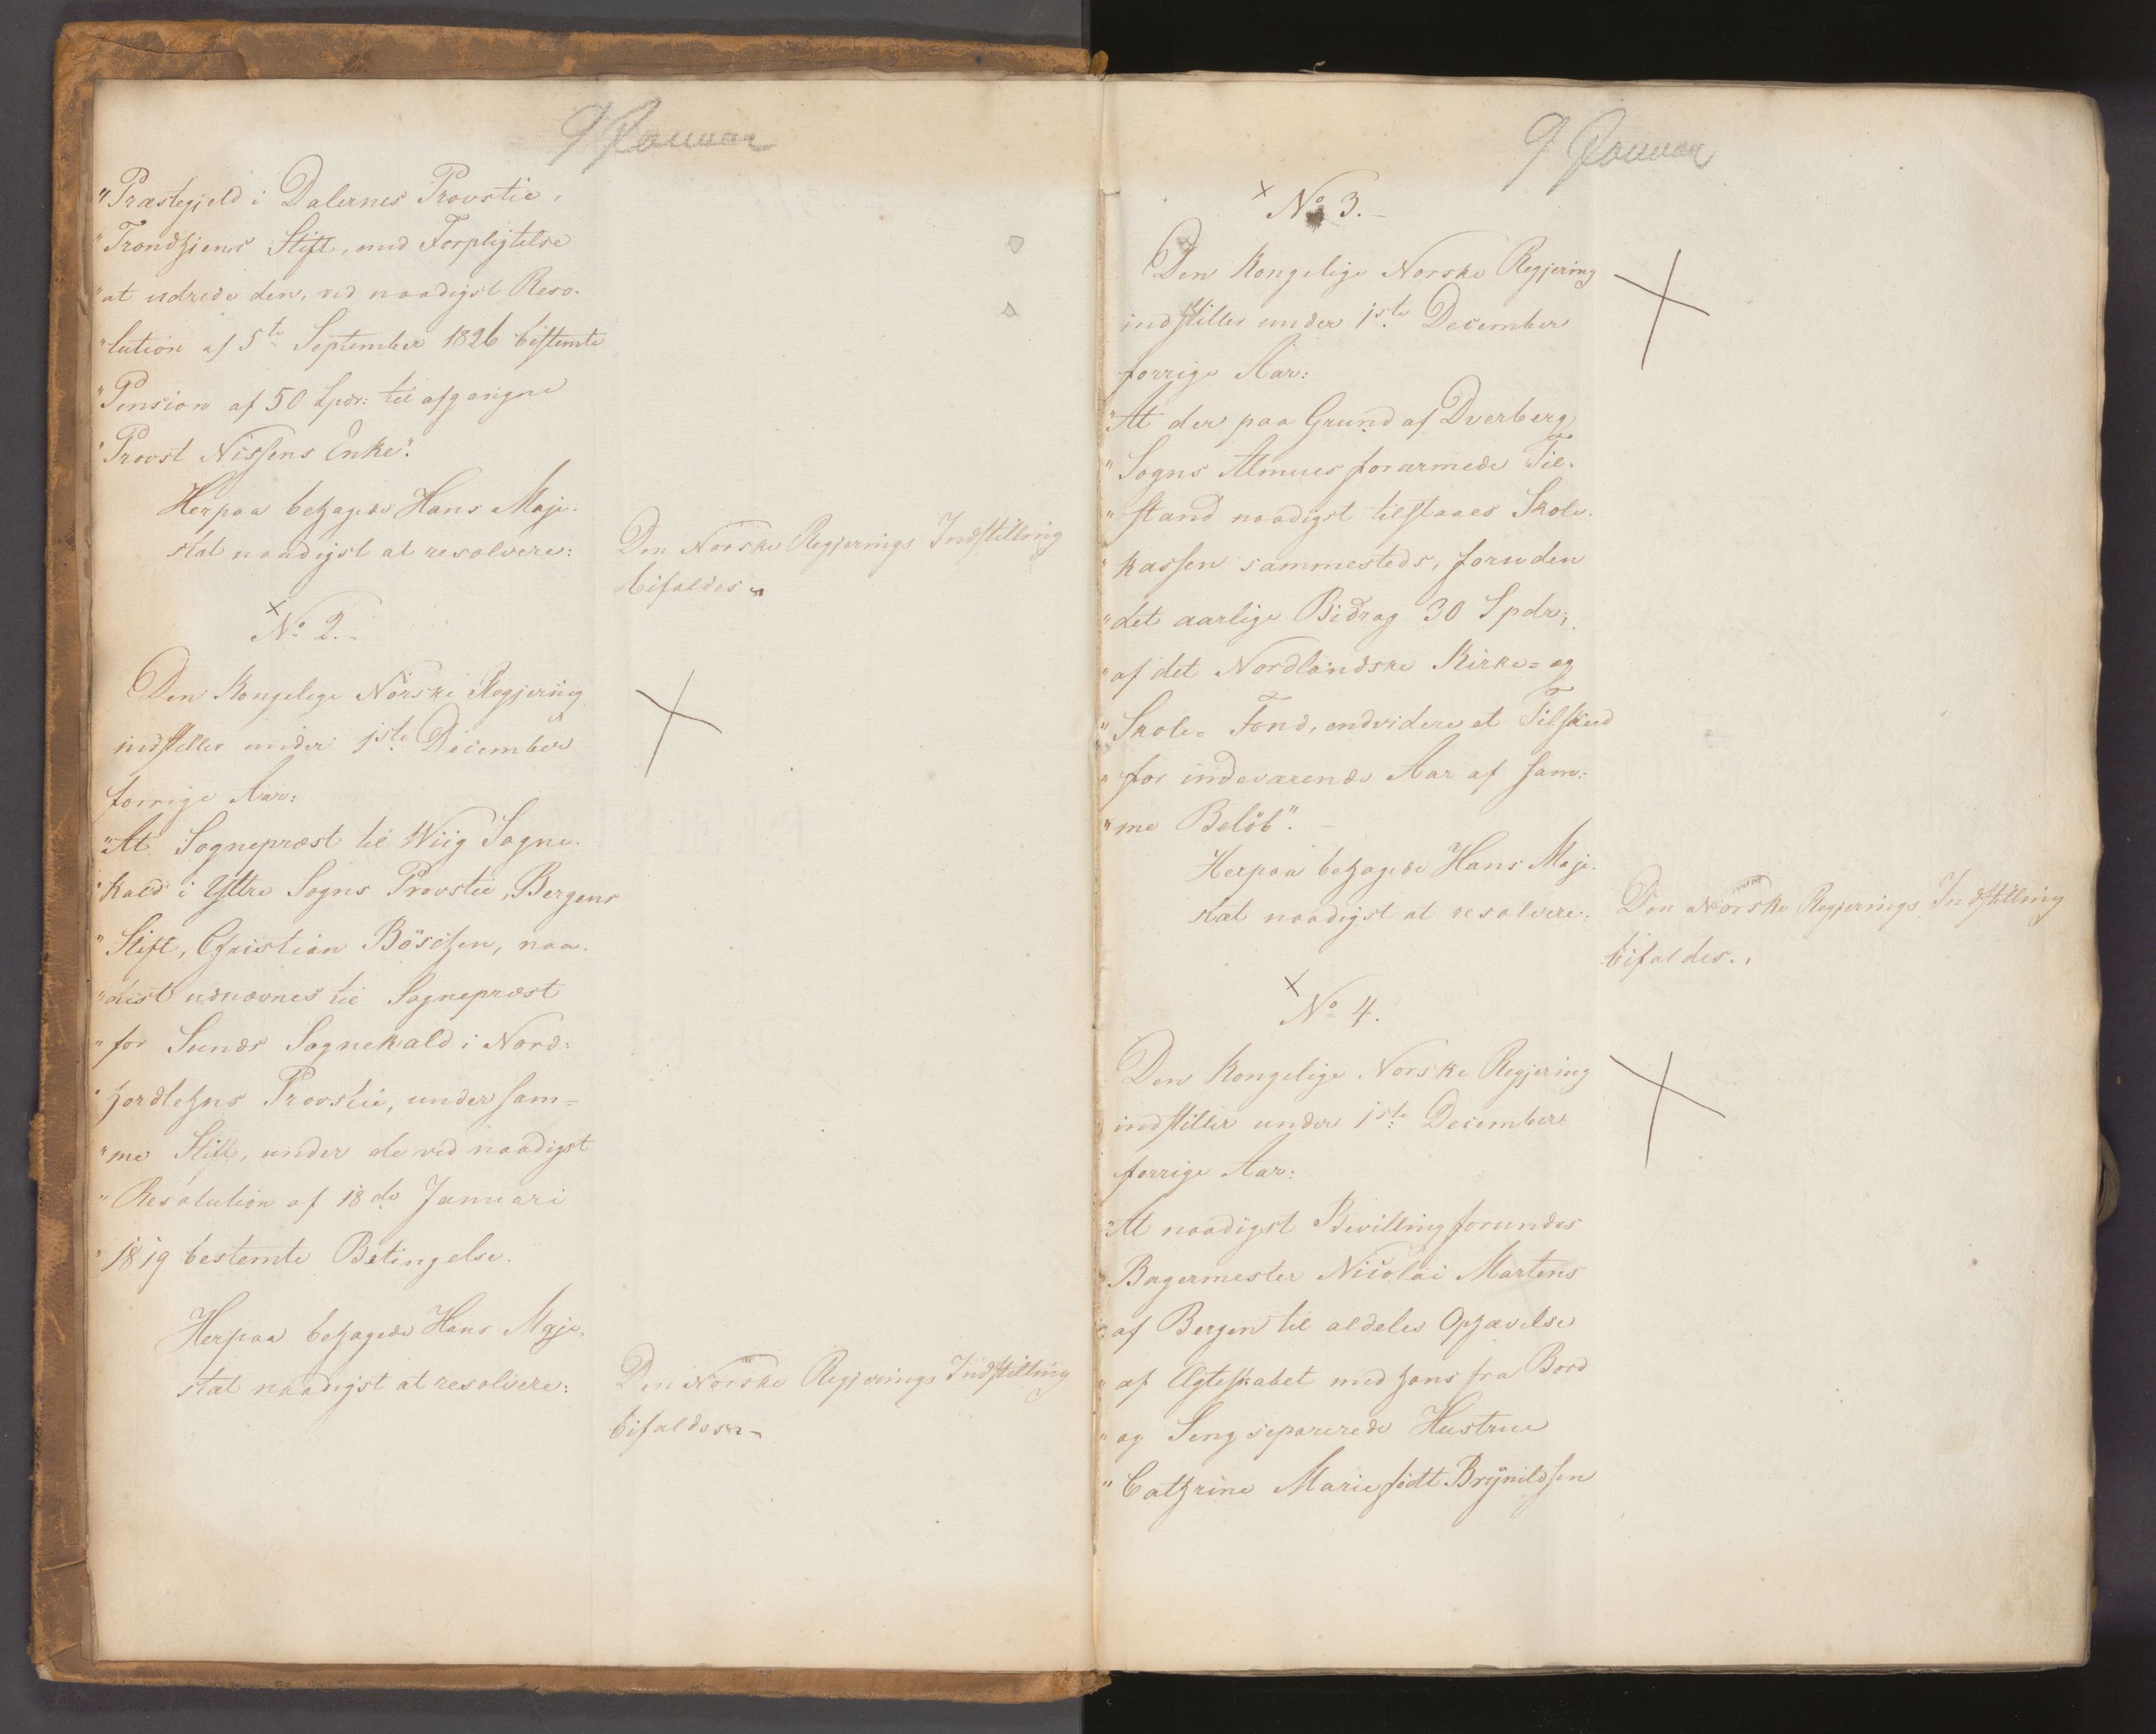 9 Januar
"Præstegjeld i Dalernes Provstie,
"Trondhjems Stift, med Forpligtelse
"at udrede den, ved naadigst Reso-
"lution af 5te September 1826 bestemte
"Pension af 50 Spdr: til afgangne
"Provst Nissens Enke".
Herpaa behagede Hans Maje-
stæt naadigst at resolvere:
Den Norske Regjerings Indstilling
bifaldes
× No 2.
Den Kongelige Norske Regjering
indstiller under 1ste December
forrige Aar:
"At Sognepræst til Wiig Sogne-
"kald i Yttre Sogns Provstie, Bergens
"Stift, Christian Böschen, naa-
"dist udnævnes til Sognepræst
"for Sunds Sognekald i Nord-
"hordlehns Provstie, under sam-
"me Stift, under de ved naadigst
"Resolution af 18de Januari
"1819 bestemte Betingelse.
Herpaa behagede Hans Maje-
stæt naadigst at resolvere:
Den Norske Regjerings Indstilling
bifaldes
9 Januar
× No 3.
Den Kongelige Norske Regjering
indstiller under 1ste December
forrige Aar:
"At der paa Grund af Dverberg
"Sogns Almues forarmede Til-
"stand naadigst tilstaaes Skole-
"kassen sammesteds, foruden
"det aarlige Bidrag 30 Spdr;
"af det Nordlandske Kirke- og
"Skole- Fond, endvidere et Tilskud
"for indeværende Aar af sam-
"me Belöb".
Herpaa behagede Hans Maje-
stæt naadigst at resolvere:
Den Norske Regjerings Indstilling
bifaldes.
× No 4.
Den Kongelige Norske Regjering
indstiller under 1ste December
forrige Aar:
"At naadigst Bevilling forundes
Bagermester Nicolai Martens
"af Bergen til aldeles Ophævelse
"af Ægteskabet med hans fra Bord
"og Seng separerede Hustrue
"Cathrine Marie födt Brynildsen